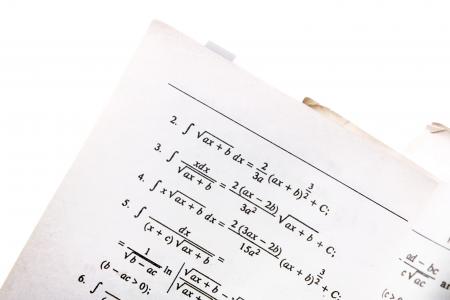 2. ∫ √ax + b dx = 2/3a (ax + b)^3/2 + C;
3. ∫ xdx/√ax + b = 2 (ax − 2b)/3a² √ax + b + C;
4. ∫ x√ax + b dx = 2 (3ax − 2b)/15a² (ax + b)^3/2 + C;
5. ∫ dx/(x + c) √ax + b =
= 1/√b − ac ln |√ax + b −
(b − ac > 0);
6. ∫
ad − bc
c√ac
(c >